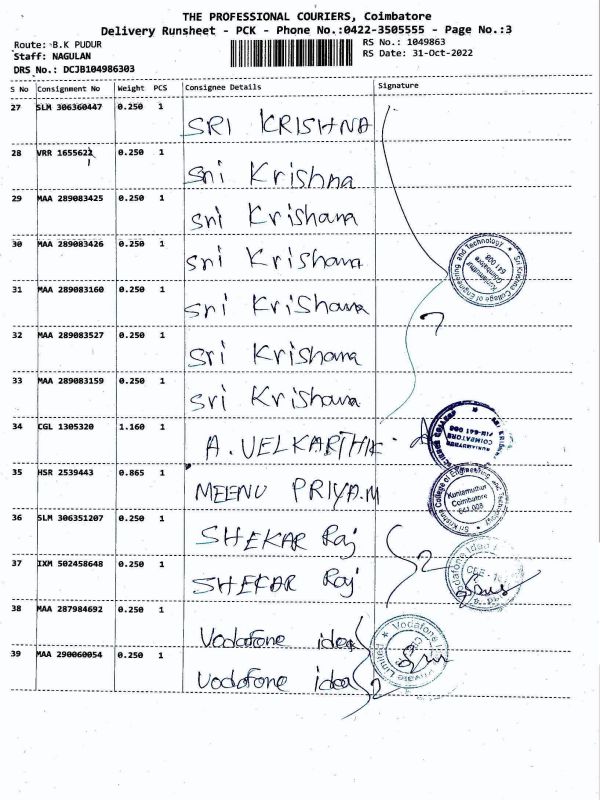 THE PROFESSIONAL COURIERS, Coimbatore
Delivery Runsheet - PCK - Phone No.:0422-3505555 - Page No.:3
Route: B.K PUDUR
RS No.: 1049863
Staff: NAGULAN
RS Date: 31-Oct-2022
DRS No.: DCJB104986303
S No Consignment No Weight PCS Consignee Details Signature
27 SLM 306360447 0.250 1 SRI KRISHNA
28 VRR 1655621 0.250 1 Sri Krishna
29 MAA 289083425 0.250 1 Sri Krishana
30 MAA 289083426 0.250 1 Sri Krishana
31 MAA 289083160 0.250 1 Sri Krishana
7
32 MAA 289083527 0.250 1 Sri Krishana
33 MAA 289083159 0.250 1 Sri Krishana
34 CGL 1305320 1.160 1 A. VELKARTHIK
35 HSR 2539443 0.865 1 MEENU PRIYA.M
36 SLM 306351207 0.250 1 SHEKAR Raj
2
37 IXM 502458648 0.250 1 SHEKAR Raj
38 MAA 287984692 0.250 1 Vodafone idea
39 MAA 290060054 0.250 1 Vodafone idea
2
Sri Krishna College of Engineering and Technology
Kuniamuthur
Coimbatore
641 008
KUNIAMUTHUR
COIMBATORE
PIN-641 008
Sri Krishna College of Engineering and Technology
Kuniamuthur
Coimbatore
641 008
Vodafone Idea
Vodafone
Private Limited